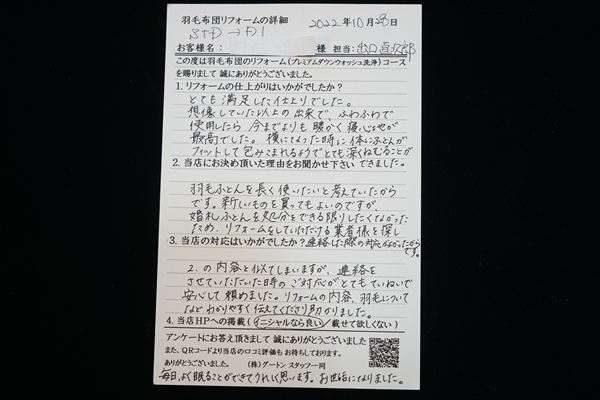 羽毛布団リフォームの詳細 2022年10月28日
STD→D1
お客様名： 様 担当：出口直次郎
この度は羽毛布団のリフォーム(プレミアムダウンウォッシュ洗浄)コース
を賜りまして 誠にありがとうございました。
1. リフォームの仕上がりはいかがでしたか？
とても満足した仕上りでした。
想像していた以上の出来で、ふわふわで
使用したら今までよりも暖かく寝心地が
最高でした。横になった時に体にふとんが
フィットして包みこまれるようでとても深くねむることが
できました。
2. 当店にお決め頂いた理由をお聞かせ下さい
羽毛ふとんを長く使いたいと考えていたから
です。新しいものを買ってもよいのですが、
婚礼ふとんを処分をできる限りしたくなかった
ため、リフォームをしていただける業者様を探し
連絡した際の対応がよかったから
です。
3. 当店の対応はいかがでしたか？
2、の内容と似てしまいますが、連絡を
させていただいた時のご対応がとてもていねいで
安心して頼めました。リフォームの内容、羽毛について
などわかりやすく伝えてくださり助かりました。
4. 当店HPへの掲載(イニシャルなら良い／載せて欲しくない)
アンケートにお答え頂きまして 誠にありがとうございました
また、QRコードより当店の口コミ評価も お待ちしております。
ありがとうございました。 (株)グートン スタッフ一同
毎日、よく眠ることができてうれしく思います。お世話になりました。